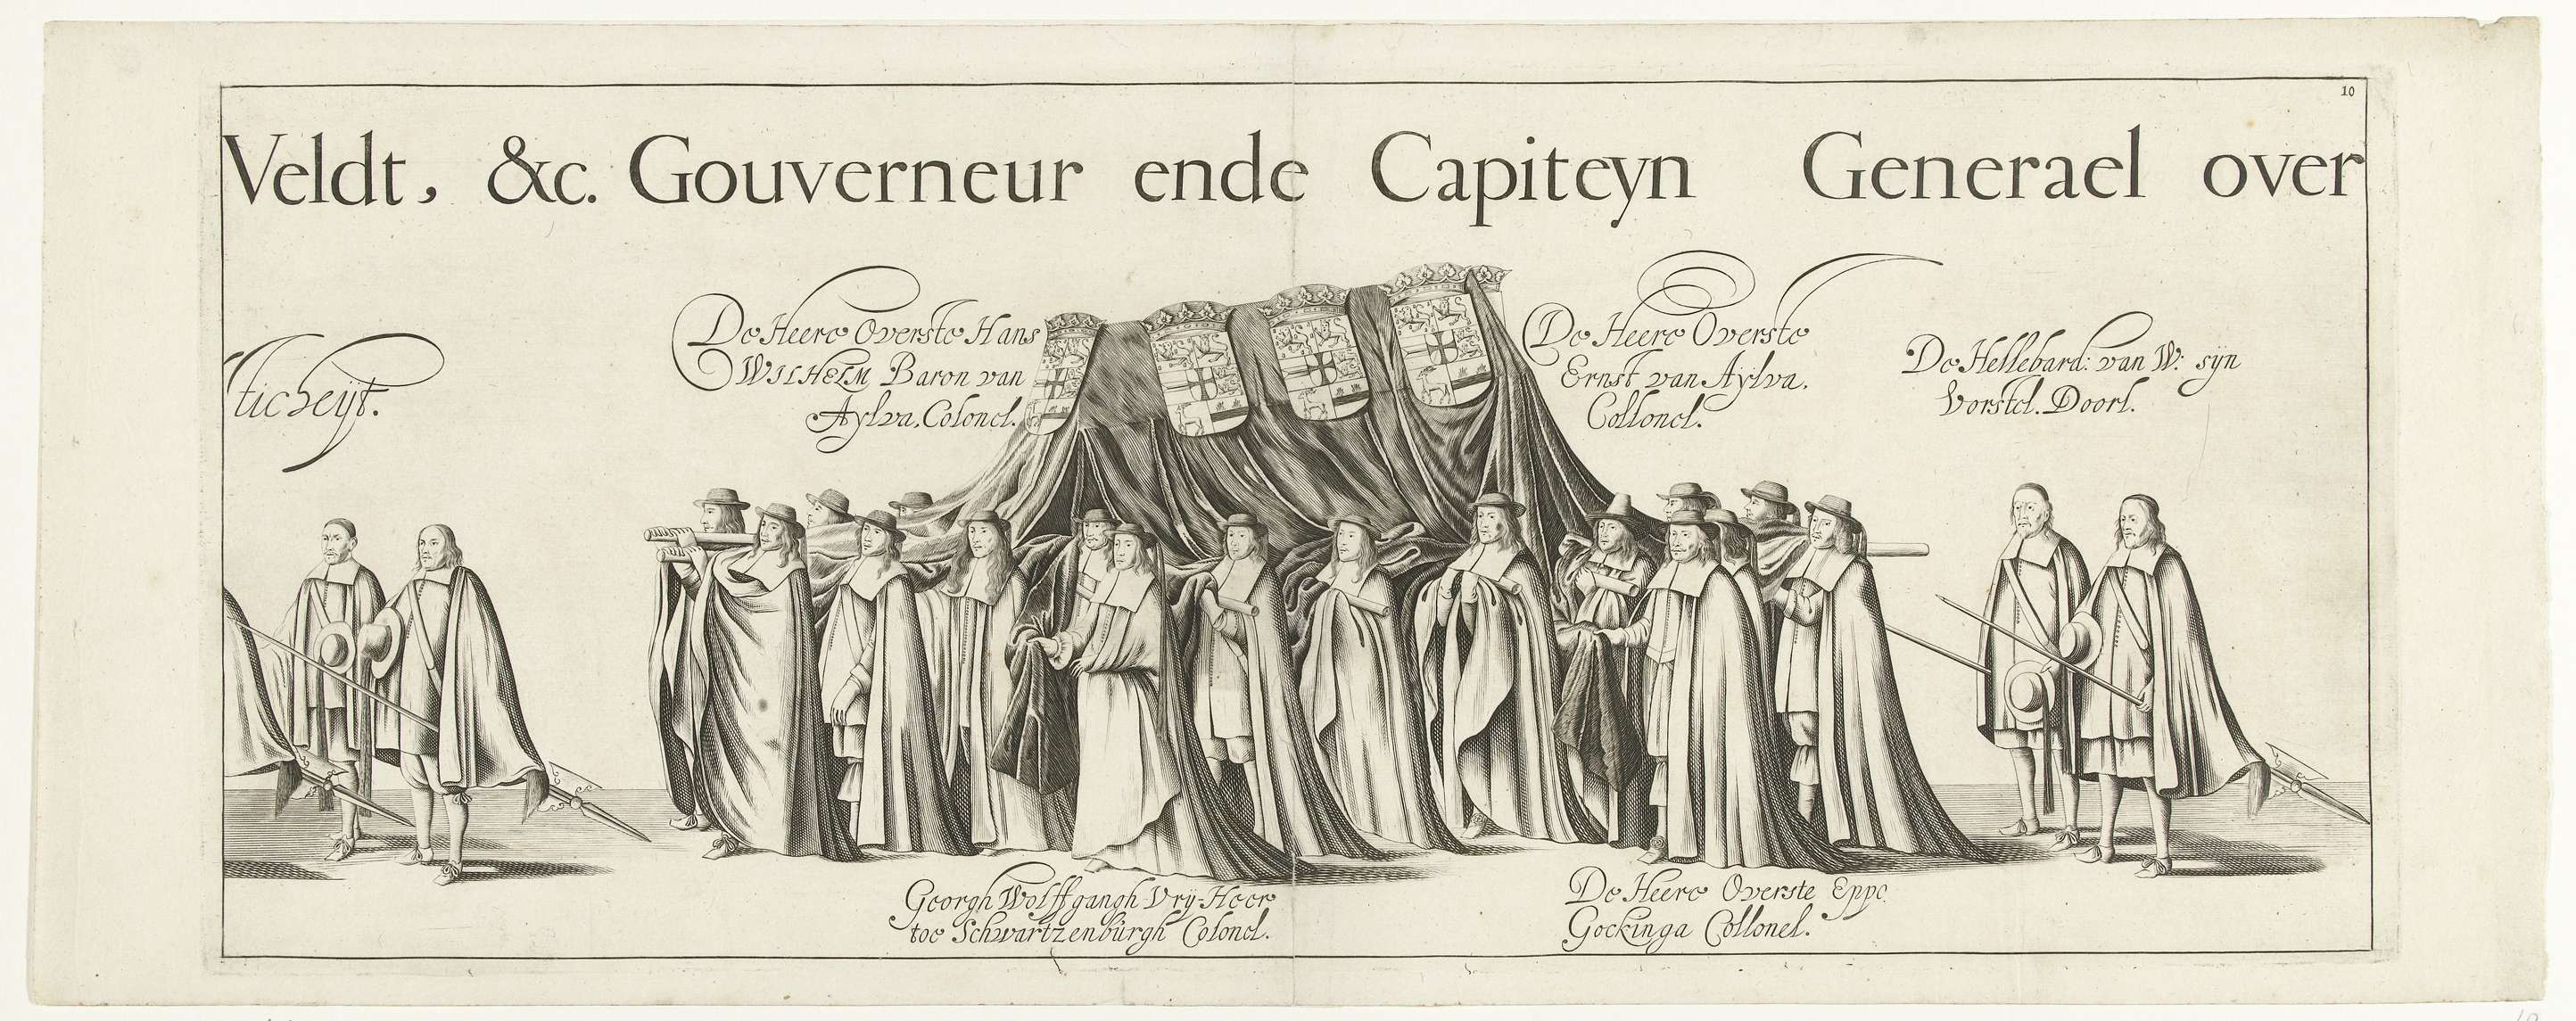 10
Veldt, &c. Gouverneur ende Capiteyn Generael over
ticheijt.
De Heere Overste Hans
WILHELM Baron van
Aylva. Colonel.
De Heere Overste
Ernst van Aÿlva.
Collonel.
De Hellebard: van W: sÿn
Vorstel. Doorl.
Georgh Wolffgangh Vrÿ-Heer
toe Schwartzenbürgh Colonel.
De Heere Overste Eppo
Gockinga Collonel.